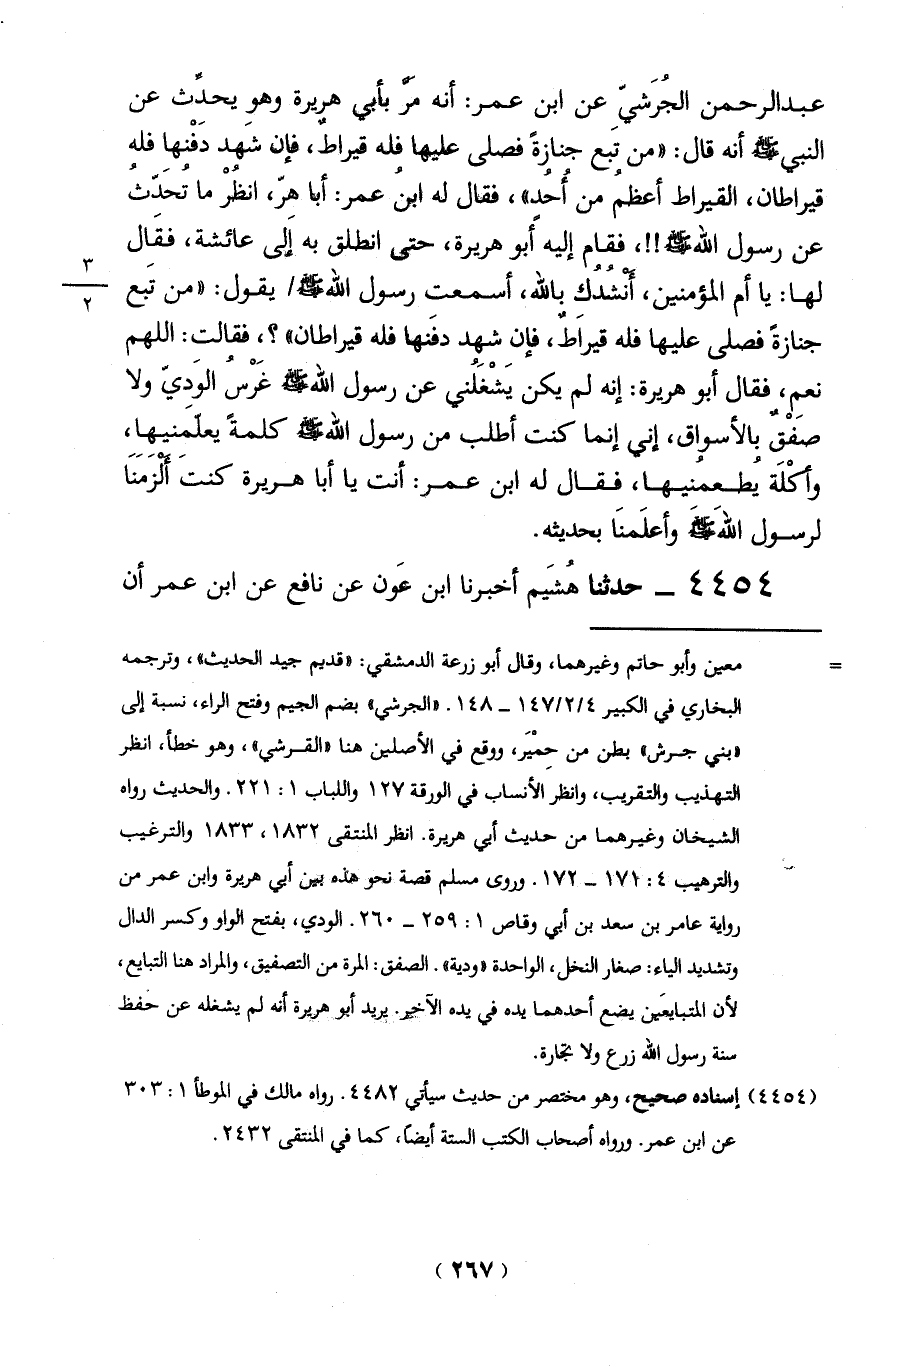 عبدالرحمن الجُرَشيّ عن ابن عمر: أنه مَرَّ بأبي هريرة وهو يحدِّث عن
النبي ﷺ أنه قال: «من تَبِع جنازةً فصلى عليها فله قيراطٌ، فإن شَهِد دَفْنها فله
قيراطان، القيراط أعظمُ من أُحُدٍ»، فقال له ابنُ عمر: أبا هِرّ، انظُرْ ما تُحَدِّثُ
عن رسول الله ﷺ!!، فقام إليه أبو هريرة، حتى انطلق به إلى عائشة، فقال
٣
لها: يا أم المؤمنين، أَنْشُدُكِ بالله، أسمعتِ رسول الله ﷺ/ يقول: «من تَبِع
٢
جنازةً فصلى عليها فله قيراطٌ، فإن شهد دفنها فله قيراطان»؟، فقالت: اللهم
نعم، فقال أبو هريرة: إنه لم يكن يَشْغَلُني عن رسول الله ﷺ غَرْسُ الوَدِيّ ولا
صَفْقٌ بالأسواق، إني إنما كنت أطلب من رسول الله ﷺ كلمةً يعلّمنيها،
وأكْلَةً يُطعمُنيها، فقال له ابن عمر: أنت يا أبا هريرة كنتَ أَلْزَمَنَا
لرسول الله ﷺ وأعلَمنَا بحديثه.
٤٤٥٤ ـ حدثنا هُشَيم أخبرنا ابن عَون عن نافع عن ابن عمر أن
= معين وأبو حاتم وغيرهما، وقال أبو زرعة الدمشقي: «قديم جيد الحديث»، وترجمه
البخاري في الكبير ١٤٧/٢/٤ ـ ١٤٨. «الجرشي» بضم الجيم وفتح الراء، نسبة إلى
«بني جرش» بطن من حِمْيَر، ووقع في الأصلين هنا «القرشي»، وهو خطأ، انظر
التهذيب والتقريب، وانظر الأنساب في الورقة ١٢٧ واللباب ١: ٢٢١. والحديث رواه
الشيخان وغيرهما من حديث أبي هريرة. انظر المنتقى ١٨٣٢، ١٨٣٣ والترغيب
والترهيب ٤: ١٧١ ـ ١٧٢. وروى مسلم قصة نحو هذه بين أبي هريرة وابن عمر من
رواية عامر بن سعد بن أبي وقاص ١: ٢٥٩ ـ ٢٦٠. الودي، بفتح الواو وكسر الدال
وتشديد الياء: صغار النخل، الواحدة «ودية». الصفق: المرة من التصفيق، والمراد هنا التبايع،
لأن المتبايعَين يضع أحدهما يده في يده الآخير. يريد أبو هريرة أنه لم يشغله عن حفظ
سنة رسول الله زرع ولا تجارة.
(٤٤٥٤) إسناده صحيح، وهو مختصر من حديث سيأتي ٤٤٨٢. رواه مالك في الموطأ ١: ٣٠٣
عن ابن عمر. ورواه أصحاب الكتب الستة أيضاً، كما في المنتقى ٢٤٣٢.
(٢٦٧)